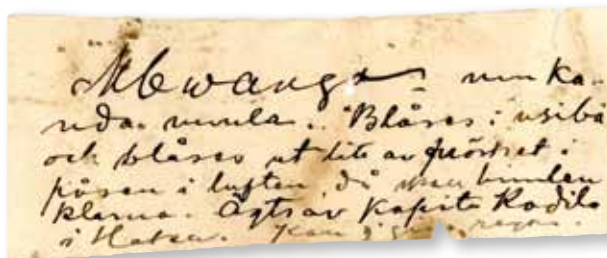 Mbwanga - num ka-
nda mvula. "Blåses i usiba
och blåses ut lite av pulvret i
påsen i luften, då skall himlen
klarna. Ägts av Kapita Kadilo
i Matsa. Kan ej göra regn.